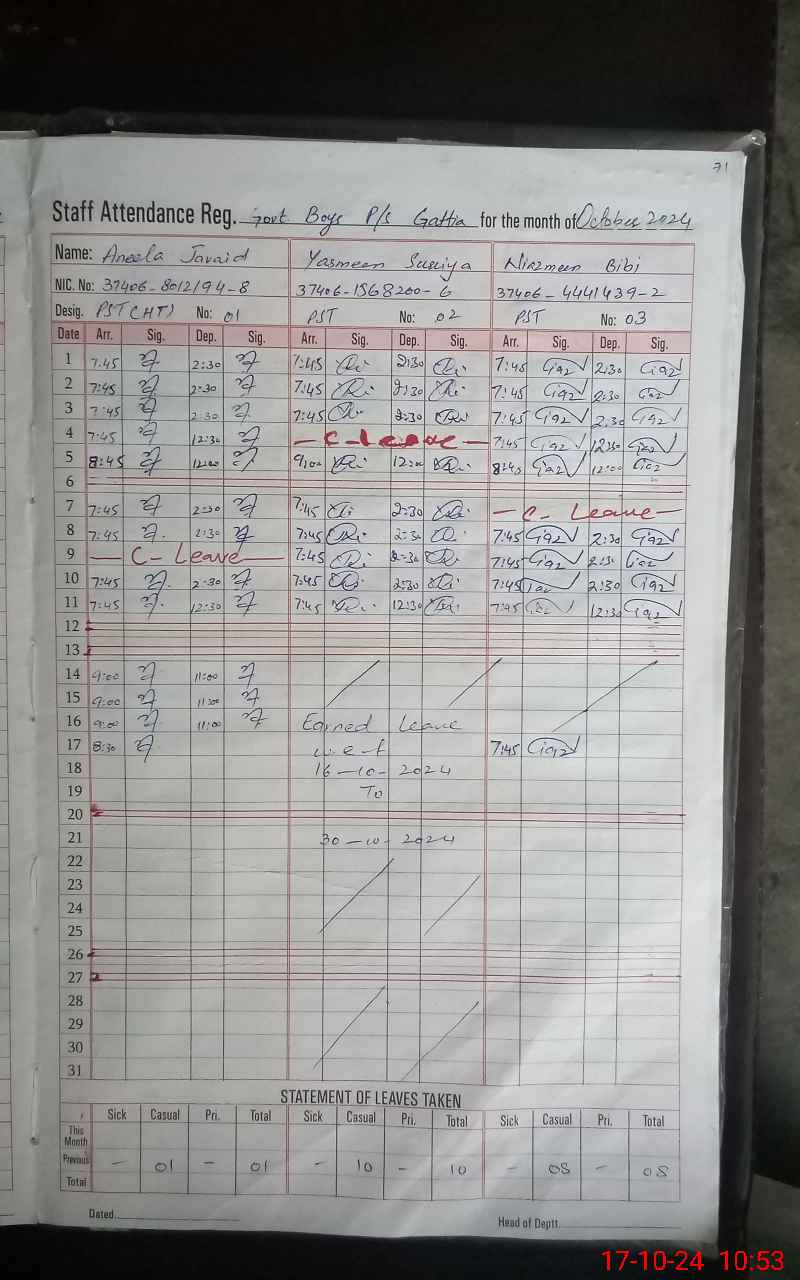 71
Staff Attendance Reg. Govt Boys P/s Gattia for the month of October 2024
Name: Aneela Javaid Yasmeen Surriya Nirzmeen Bibi
NIC. No: 37406-8012194-8 37406-1568200-6 37406-4441439-2
Desig. PST(HT) No: 01 PST No: 02 PST No: 03
Date Arr. Sig. Dep. Sig. Arr. Sig. Dep. Sig. Arr. Sig. Dep. Sig.
1 7:45 2:30 7:45 2:30 7:45 2:30
2 7:45 2:30 7:45 2:30 7:45 2:30
3 7:45 2:30 7:45 2:30 7:45 2:30
4 7:45 12:30 - C - leave - 7:45 12:30
5 8:45 12:00 9:00 12:00 8:45 12:00
6
7 7:45 2:30 7:45 2:30 - C - Leave -
8 7:45 2:30 7:45 2:30 7:45 2:30
9 - C - Leave - 7:45 2:30 7:45 2:30
10 7:45 2:30 7:45 2:30 7:45 2:30
11 7:45 12:30 7:45 12:30 7:45 12:30
12
13
14 9:00 11:00
15 9:00 11:00
16 9:00 11:00 Earned Leave
17 8:30 w.e.f 7:45
18 16-10-2024
19 To
20
21 30-10-2024
22
23
24
25
26
27
28
29
30
31
STATEMENT OF LEAVES TAKEN
Sick Casual Pri. Total Sick Casual Pri. Total Sick Casual Pri. Total
This Month
Previous - 01 - 01 - 10 - 10 - 08 - 08
Total
Dated Head of Deptt.
17-10-24 10:53